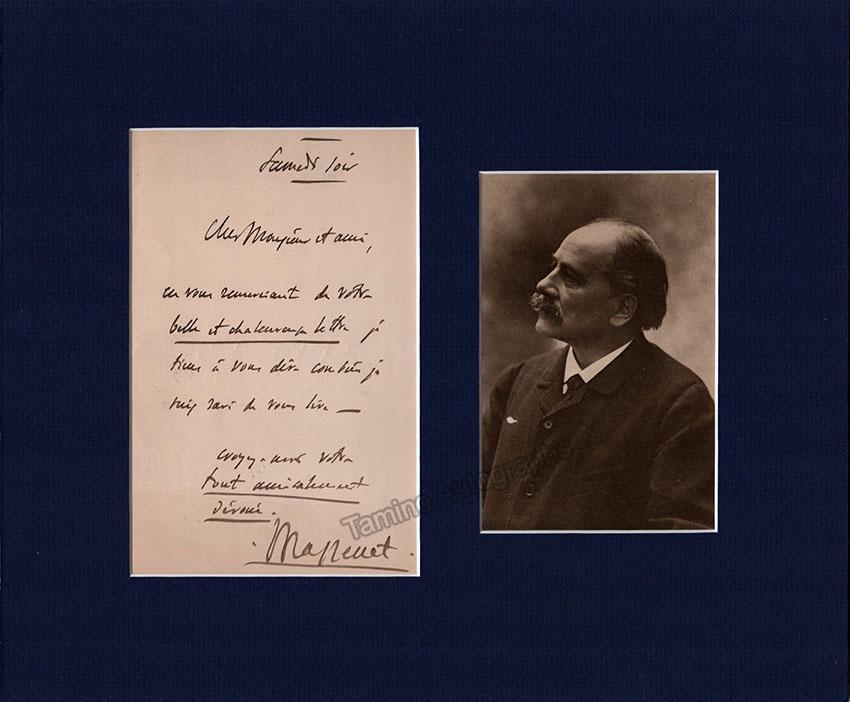 Samedi soir
Cher Monsieur et ami,
en vous remerciant de votre
belle et chaleureuse lettre je
tiens à vous dire combien je
suis ravi de vous lire —
croyez-moi votre
tout amicalement
dévoué.
Massenet.
Tamino Autographs